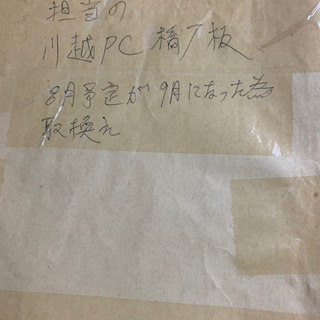 担当の
川越PC 橋ノ板
8月予定が9月になった為
取換え